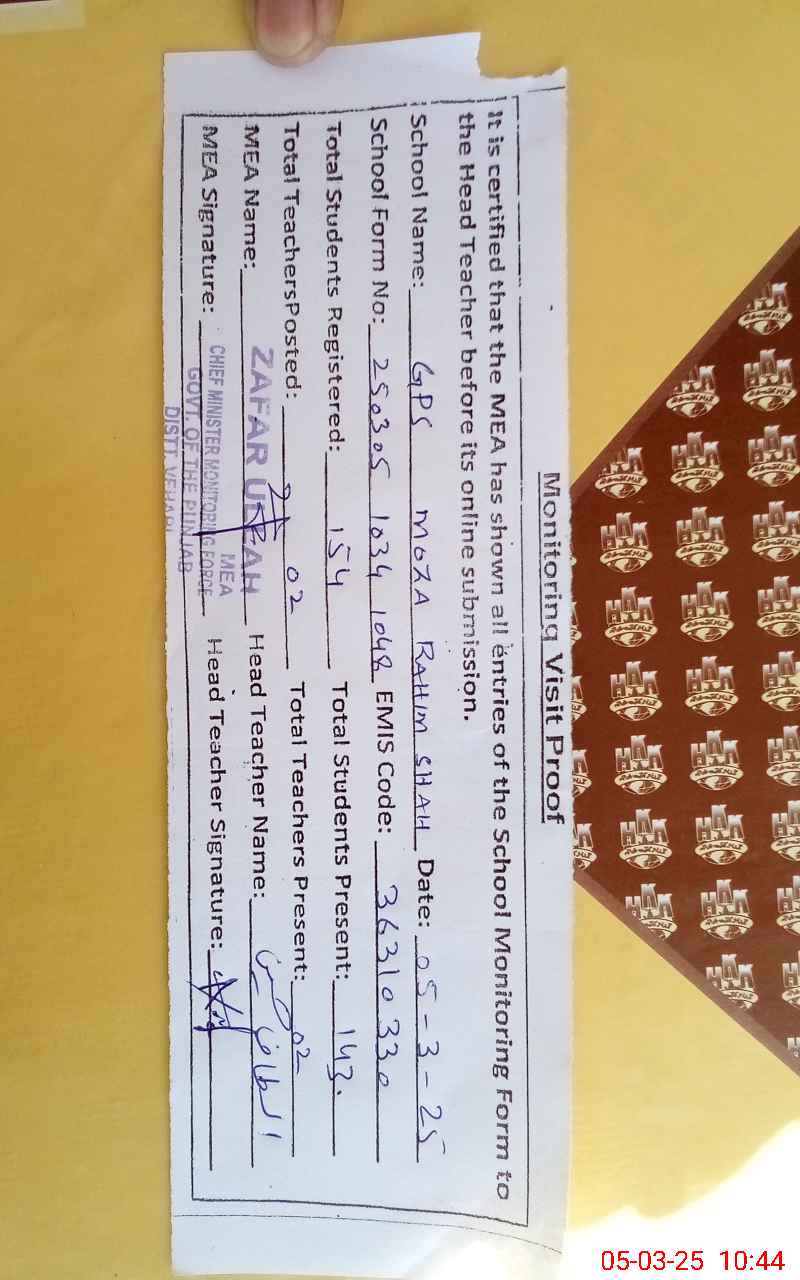 Monitoring Visit Proof
It is certified that the MEA has shown all entries of the School Monitoring Form to
the Head Teacher before its online submission.
School Name: GPS MOZA RAHIM SHAH Date: 05-3-25
School Form No: 250305 1034 1048 EMIS Code: 36310330
Total Students Registered: 154 Total Students Present: 143.
Total TeachersPosted: 02 Total Teachers Present: 02
MEA Name: ZAFAR ULLAH Head Teacher Name: الطاف حسین
MEA Signature: Head Teacher Signature:
MEA
CHIEF MINISTER MONITORING FORCE
GOVT. OF THE PUNJAB
DISTT. VEHARI
05-03-25 10:44